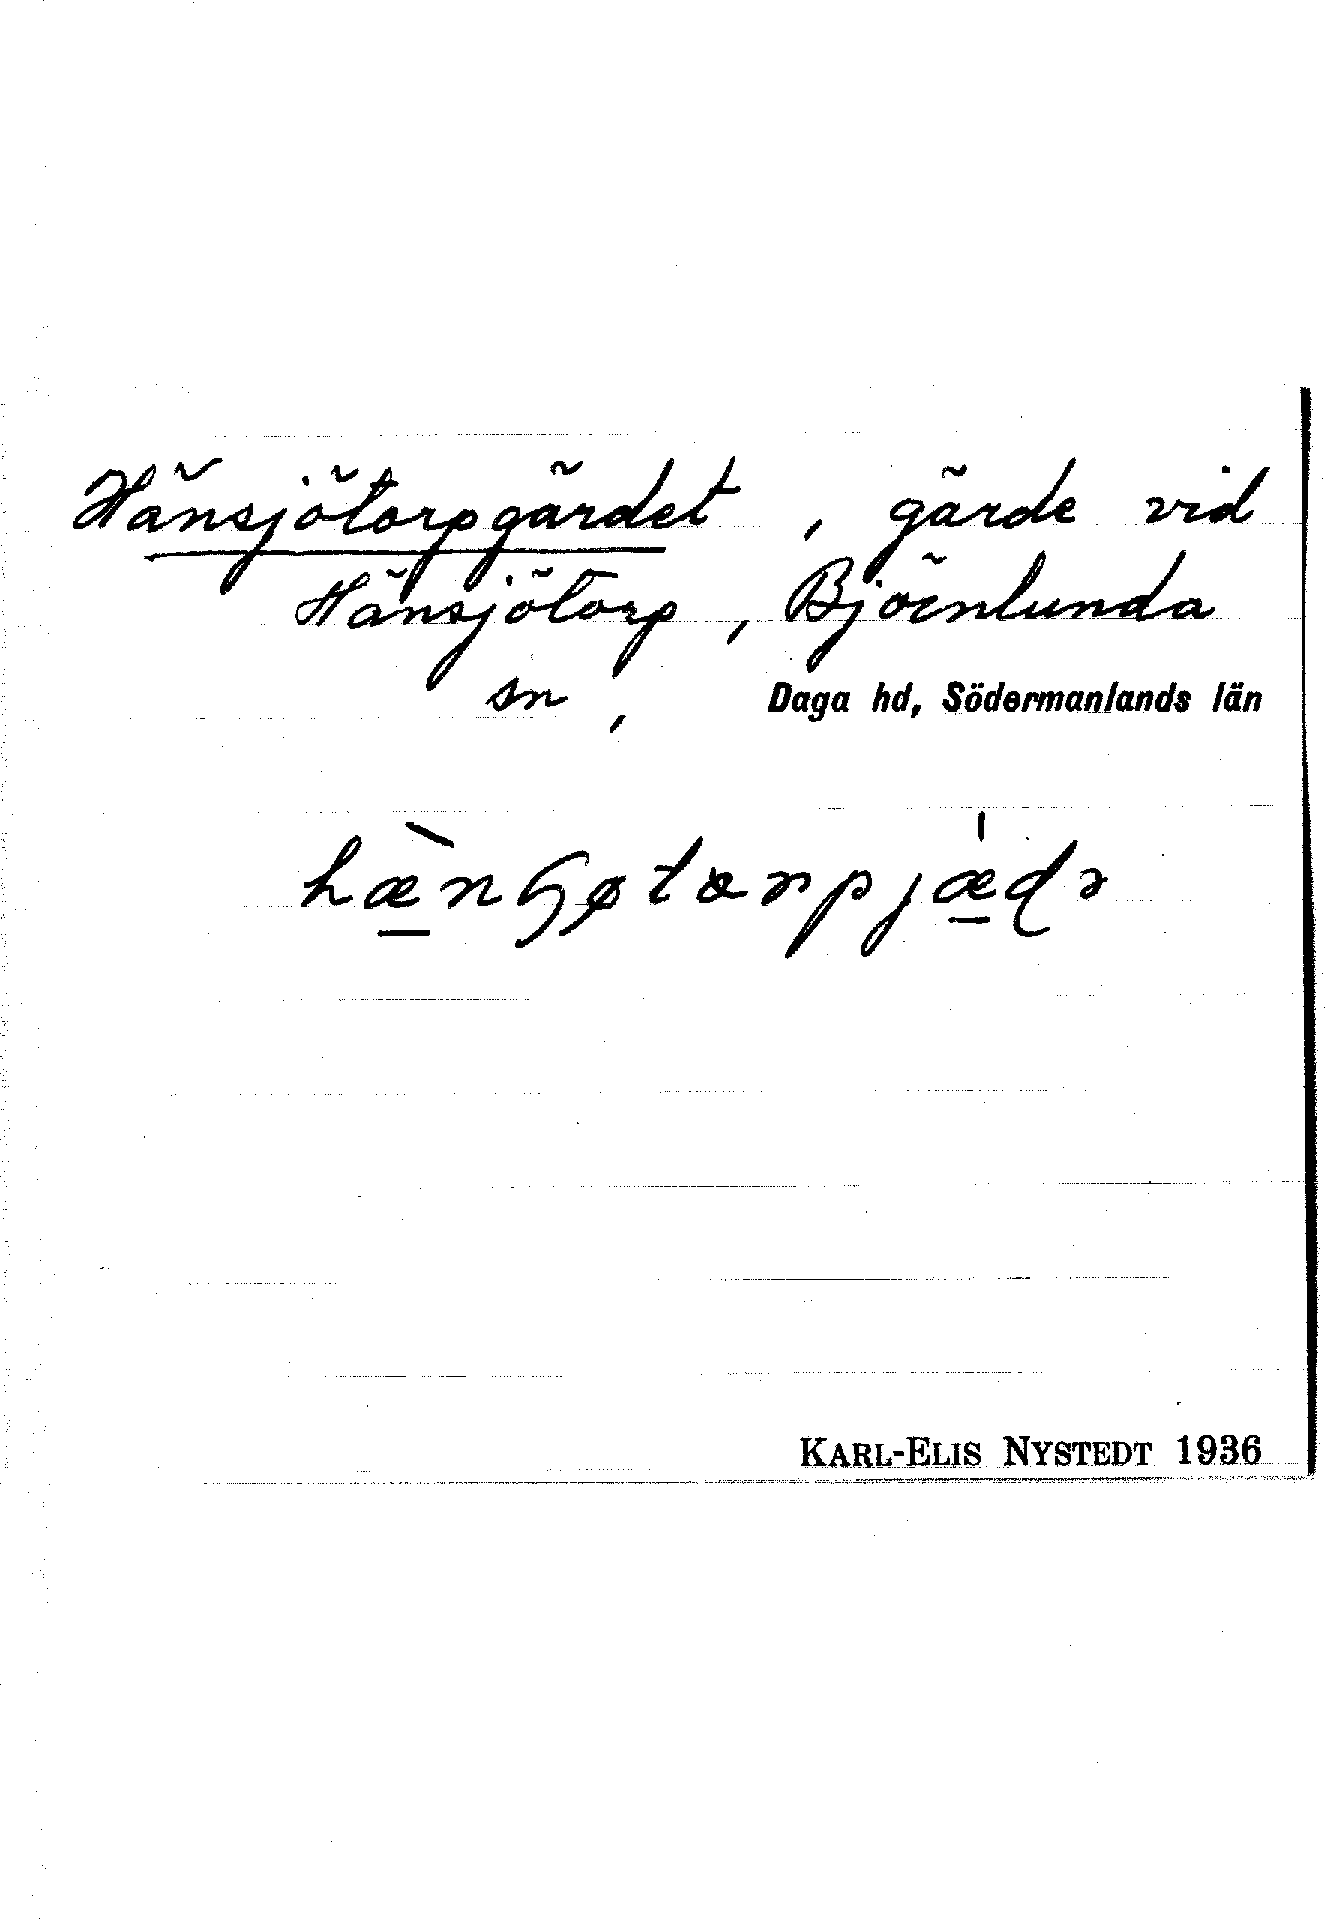 Hänsjötorpgärdet, gärde vid
Hänsjötorp, Björnlunda
sn, Daga hd, Södermanlands län
KARL-ELIS NYSTEDT 1936